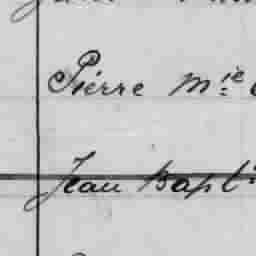 Pierre M.ie
Jean Bapt.